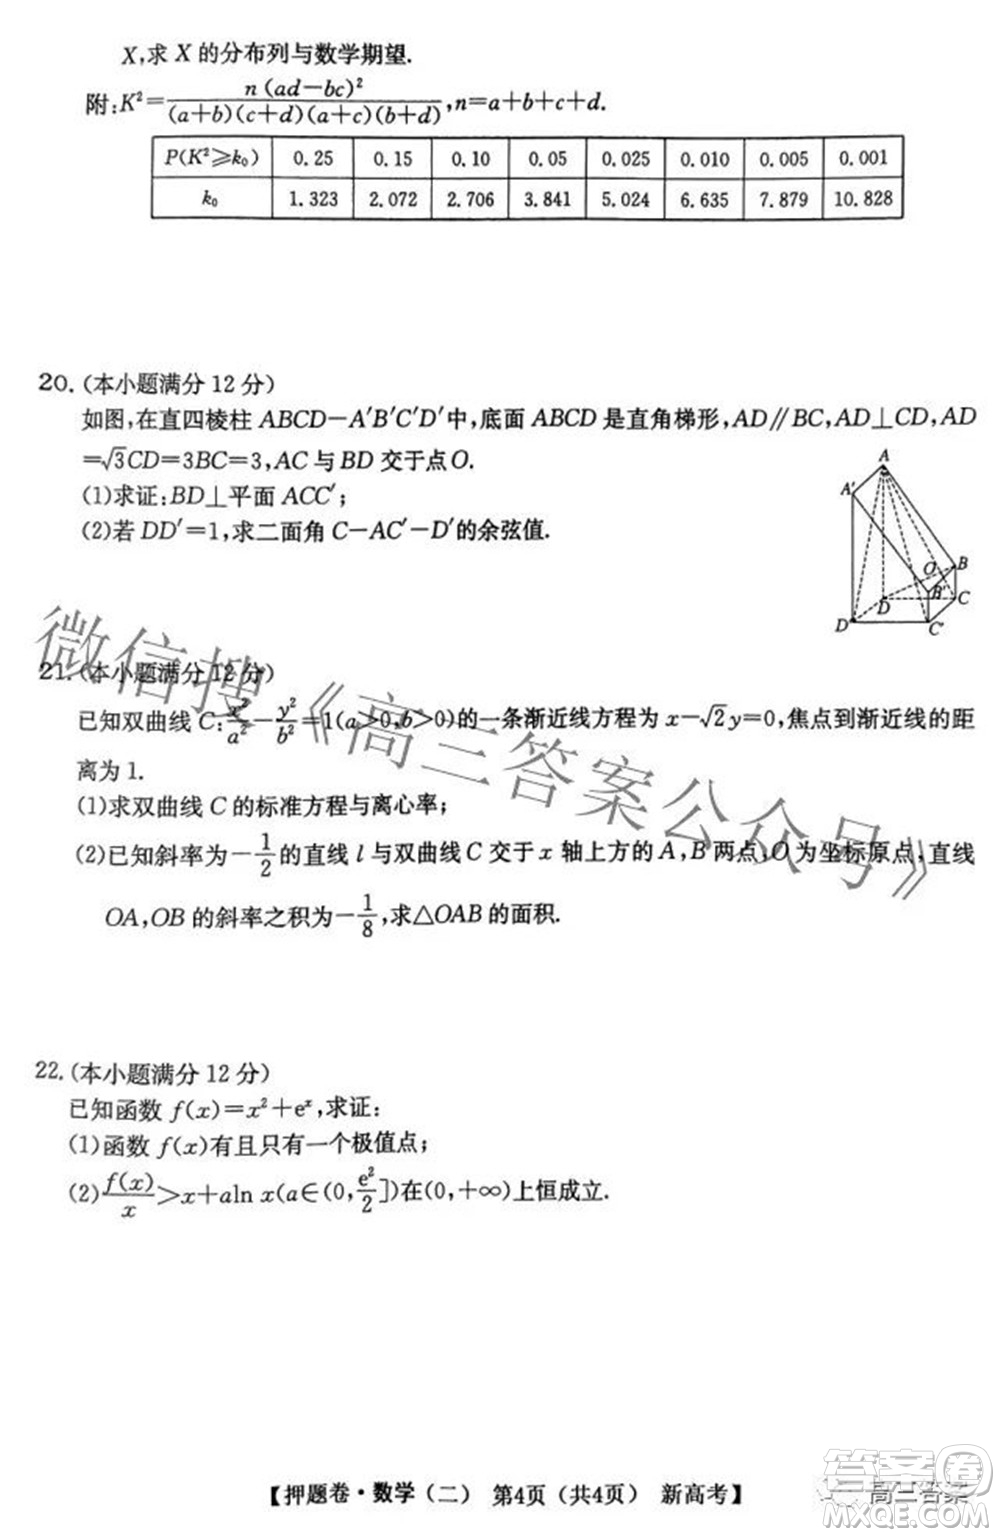 X,求 X 的分布列与数学期望.
附:K²=n(ad−bc)²/(a+b)(c+d)(a+c)(b+d),n=a+b+c+d.
P(K²≥k₀) 0.25 0.15 0.10 0.05 0.025 0.010 0.005 0.001
k₀ 1.323 2.072 2.706 3.841 5.024 6.635 7.879 10.828
20.(本小题满分 12 分)
如图,在直四棱柱 ABCD−A′B′C′D′中,底面 ABCD 是直角梯形,AD∥BC,AD⊥CD,AD
=√3CD=3BC=3,AC 与 BD 交于点 O.
(1)求证:BD⊥平面 ACC′;
(2)若 DD′=1,求二面角 C−AC′−D′的余弦值.
A
A′
O
B
B′
D
C
D′
C′
21.(本小题满分 12 分)
已知双曲线 C:x²/a²−y²/b²=1(a>0,b>0)的一条渐近线方程为 x−√2y=0,焦点到渐近线的距
离为 1.
(1)求双曲线 C 的标准方程与离心率;
(2)已知斜率为−1/2的直线 l 与双曲线 C 交于 x 轴上方的 A,B 两点,O 为坐标原点,直线
OA,OB 的斜率之积为−1/8,求△OAB 的面积.
22.(本小题满分 12 分)
已知函数 f(x)=x²+eˣ,求证:
(1)函数 f(x)有且只有一个极值点;
(2)f(x)/x>x+aln x(a∈(0,e²/2])在(0,+∞)上恒成立.
【押题卷·数学(二) 第4页(共4页) 新高考】
微信搜《高三答案公众号》
答案圈
高三答案